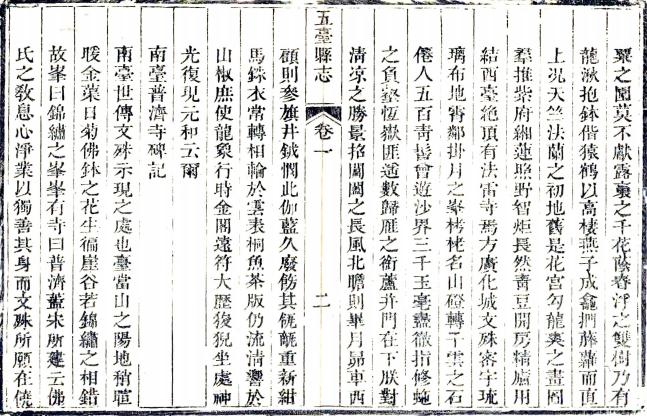 眾之園莫不獻露裛之千花蔭春浮之雙樹乃有
龍潊抱鉢偕猿鶴以高棲燕子成龕捫藤蘿而直
上況天竺法蘭之初地舊是花宮勾龍爽之畫圖
羣推紫府緗蓮照野智炬長然靑豆開房精廬用
結西臺絕頂有法雷寺焉方廣化城文殊密宇琉
璃布地霄鄰掛月之峯栲栳名山磴轉干雲之石
僊人五百靑髻會遊沙界三千玉毫盡徹指修蛇
之負壑恆嶽匪遙數歸雁之銜蘆幷門在下朕對
淸凉之勝景招閶闔之長風北瞻則畢月昴車西
顧則參旗井鉞憫此伽藍久廢飭其甈䴡重新紺
馬銖衣常轉相輪於雲表桐魚茶版仍流淸響於
山椒庶使龍象行時金閣遠符大歷狻猊坐處神
光復現元和云爾
南臺普濟寺碑記
南臺世傳文殊示現之處也臺當山之陽地稍暄
暖金葉日菊佛鉢之花生徧崖谷若錦繡之相錯
故峯曰錦繡之峯峯有寺曰普濟蓋宋所建云佛
氏之敎息心淨業以獨善其身而文殊所願在饒
五臺縣志
卷一
二